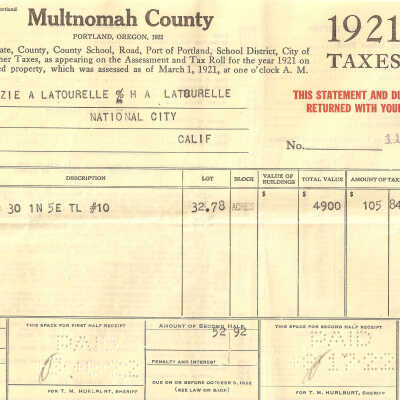 Portland
Multnomah County
PORTLAND, OREGON, 1922
ate, County, County School, Road, Port of Portland, School District, City of
her Taxes, as appearing on the Assessment and Tax Roll for the year 1921 on
ed property, which was assessed as of March 1, 1921, at one o'clock A. M.
1921
TAXES
ZIE A LATOURELLE % H A LATOURELLE
NATIONAL CITY
CALIF
THIS STATEMENT AND DU
RETURNED WITH YOUR
No.
DESCRIPTION LOT BLOCK VALUE OF BUILDINGS TOTAL VALUE AMOUNT OF TAX
$ $ $
30 1N 5E TL #10 32.78 ACRES 4900 105 84
THIS SPACE FOR FIRST HALF RECEIPT
PAID
FOR T. M. HURLBURT, SHERIFF
AMOUNT OF SECOND HALF
52 92
PENALTY AND INTEREST
DUE ON OR BEFORE OCTOBER 5, 1922
(SEE LAW ON BACK)
THIS SPACE FOR SECOND HALF RECEIPT
PAID
FOR T. M. HURLBURT, SHERIFF